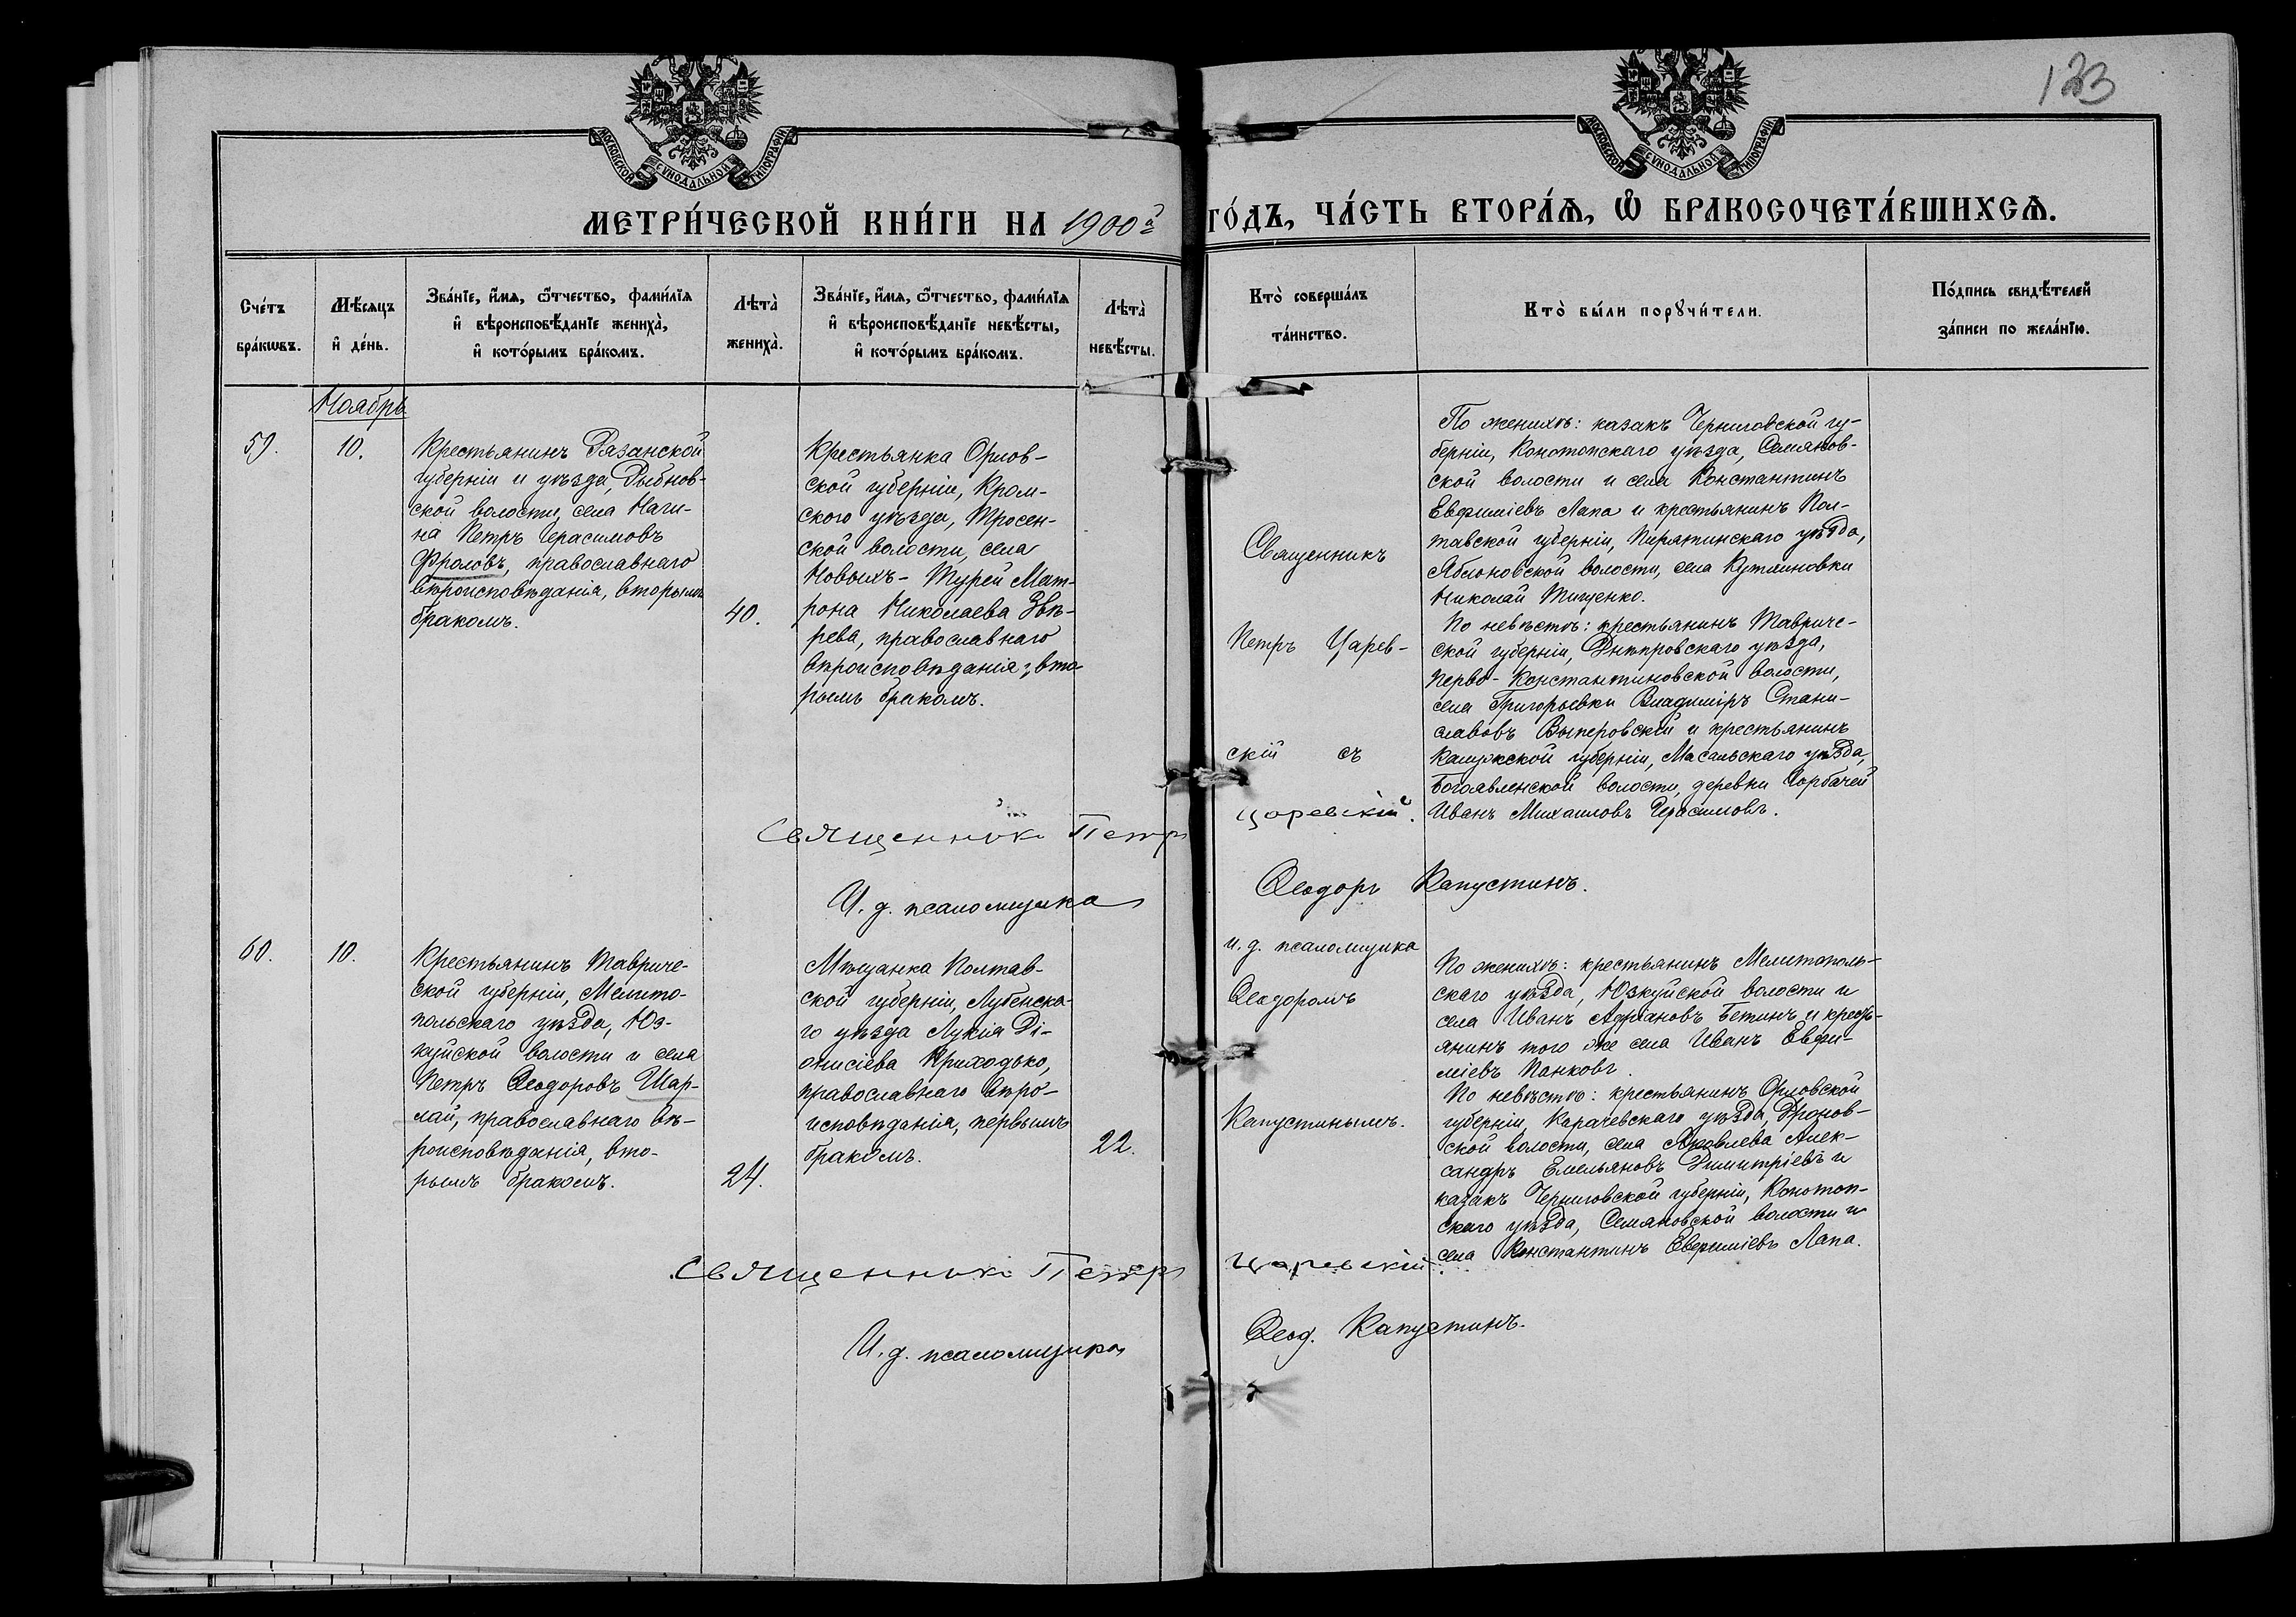 МОСКОВСКОЙ СѴНОДАЛЬНОЙ ТИПОГРАФІИ
МОСКОВСКОЙ СѴНОДАЛЬНОЙ ТИПОГРАФІИ
133
МЕТРИ́ЧЕСКОЙ КНИ́ГИ НА 1900й
ГО́ДЪ, ЧА́СТЬ ВТОРА́Ѧ, Ѽ БРАКОСОЧЕТА́ВШИХСѦ.
Сче́тъ
бра́кѡвъ.
Мѣ́сяцъ
и҆ де́нь.
Зва́нїе, и҆́мѧ, ѻ҆́тчество, фами́лїѧ
и҆ вѣроисповѣ́данїе жениха̀,
и҆ кото́рымъ бра́комъ.
Лѣта̀
жениха̀.
Зва́нїе, и҆́мѧ, ѻ҆́тчество, фами́лїѧ
и҆ вѣроисповѣ́данїе невѣ́сты,
и҆ кото́рымъ бра́комъ.
Лѣта̀
невѣ́сты.
Кто̀ соверша́лъ
та́инство.
Кто̀ бы́ли порꙋчи́тели.
По́дпись свидѣ́телей
за́писи по жела́нїю.
Ноябрь
59.
10.
Крестьянинъ Рязанской
губерніи и уѣзда, Рыбнов-
ской волости, села Наги-
на Петръ Герасимовъ
Фроловъ, православнаго
вѣроисповѣданія, вторымъ
бракомъ.
40.
Крестьянка Орлов-
ской губерніи, Кром-
ского уѣзда, Тросен-
ской волости, села
Новыхъ-Турей Мат-
рона Николаева Звѣ-
рева, православнаго
вѣроисповѣданія, вто-
рымъ бракомъ.
Священникъ
Петръ Царев-
скій съ
По женихѣ: казакъ Черниговской гу-
берніи, Конотопскаго уѣзда, Семянов-
ской волости и села Константинъ
Евфиміевъ Лапа и крестьянинъ Пол-
тавской губерніи, Пирятинскаго уѣзда,
Яблоновской волости, села
Николай Тищенко.
По невѣстѣ: крестьянинъ Тавриче-
ской губерніи, Днѣпровскаго уѣзда,
Перво-Константиновской волости,
села Григорьевки Владиміръ Стани-
славовъ Выперовскій и крестьянинъ
Калужской губерніи, Масальскаго уѣзда,
Богоявленской волости, деревни Горбачей
Иванъ Михаиловъ Герасимовъ.
Священникъ Петръ Царевскій.
И. д. псаломщика Ѳеодоръ Капустинъ.
60.
10.
Крестьянинъ Тавриче-
ской губерніи, Мелито-
польскаго уѣзда, Юз-
куйской волости и села
Петръ Ѳеодоровъ Шар-
лай, православнаго вѣ-
роисповѣданія, вто-
рымъ бракомъ.
24.
Мѣщанка Полтав-
ской губерніи, Лубенска-
го уѣзда Лукія Ді-
онисіева Приходько,
православнаго вѣро-
исповѣданія, первымъ
бракомъ.
22.
и. д. псаломщика
Ѳеодоромъ
Капустинымъ.
По женихѣ: крестьянинъ Мелитополь-
скаго уѣзда, Юзкуйской волости и
села Иванъ Адріановъ Бетинъ и кресть-
янинъ того же села Иванъ Евфи-
міевъ Панковъ.
По невѣстѣ: крестьянинъ Орловской
губерніи, Карачевскаго уѣзда, Дронов-
ской волости, села Яковлева Алек-
сандръ Емельяновъ Димитріевъ и
казакъ Черниговской губерніи, Конотоп-
скаго уѣзда, Семяновской волости и
села Константинъ Евфиміевъ Лапа.
Священникъ Петръ Царевскій.
И. д. псаломщика Ѳеод. Капустинъ.